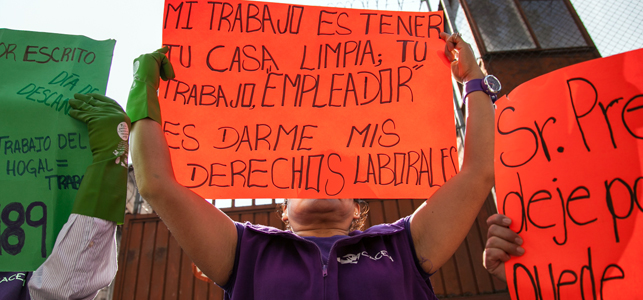 POR ESCRITO
DÍA DE
DESCANSO
TRABAJO DEL
HOGAL =
TRABA
189
MI TRABAJO ES TENER
TU CASA LIMPIA; TU
TRABAJO, "EMPLEADOR"
ES DARME MIS
DERECHOS LABORALES
Sr. Pre
deje po
puede